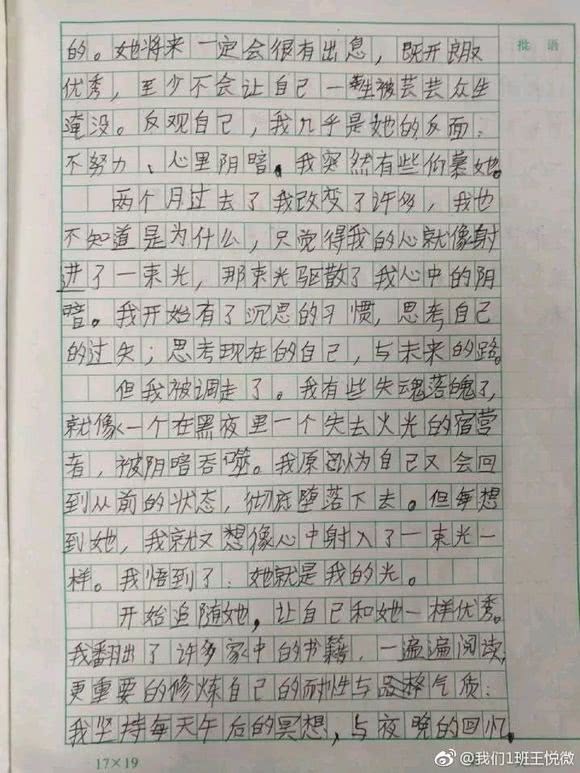 批语
的。她将来一定会很有出息，既开朗又
优秀，至少不会让自己一生被芸芸众生
淹没。反观自己，我几乎是她的反面：
不努力、心里阴暗。我突然有些伯慕她。
两个月过去了我改变了许多，我也
不知道是为什么，只觉得我的心就像射
进了一束光，那束光驱散了我心中的阴
暗。我开始有了沉思的习惯，思考自己
的过失；思考现在的自己，与未来的路。
但我被调走了。我有些失魂落魄了，
就像一个在黑夜里一个失去火光的宿营
者，被阴暗吞噬。我原认为自己又会回
到从前的状态，彻底堕落下去。但每想
到她，我就又想像心中射入了一束光一
样。我悟到了：她就是我的光。
开始追随她，让自己和她一样优秀。
我翻出了许多家中的书籍，一遍遍阅读，
更重要的修炼自己的耐性与品格气质：
我坚持每天午后的冥想，与夜晚的回忆。
17×19
@我们1班王悦微